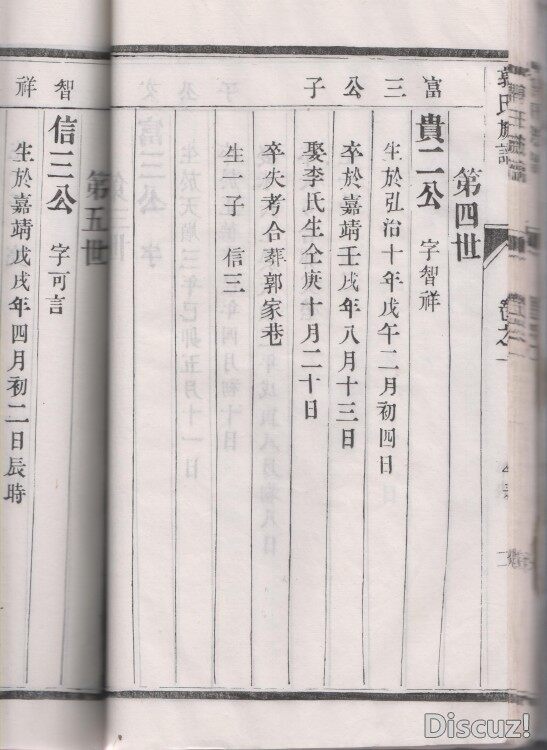 郭氏族譜
卷之一
二
第四世
富三公子
貴二公 字智祥
生於弘治十年戊午二月初四日
卒於嘉靖壬戌年八月十三日
娶李氏生仝庚十月二十日
卒失考合葬郭家巷
生一子 信三
第五世
智祥
信三公 字可言
生於嘉靖戊戌年四月初二日辰時
Discuz!